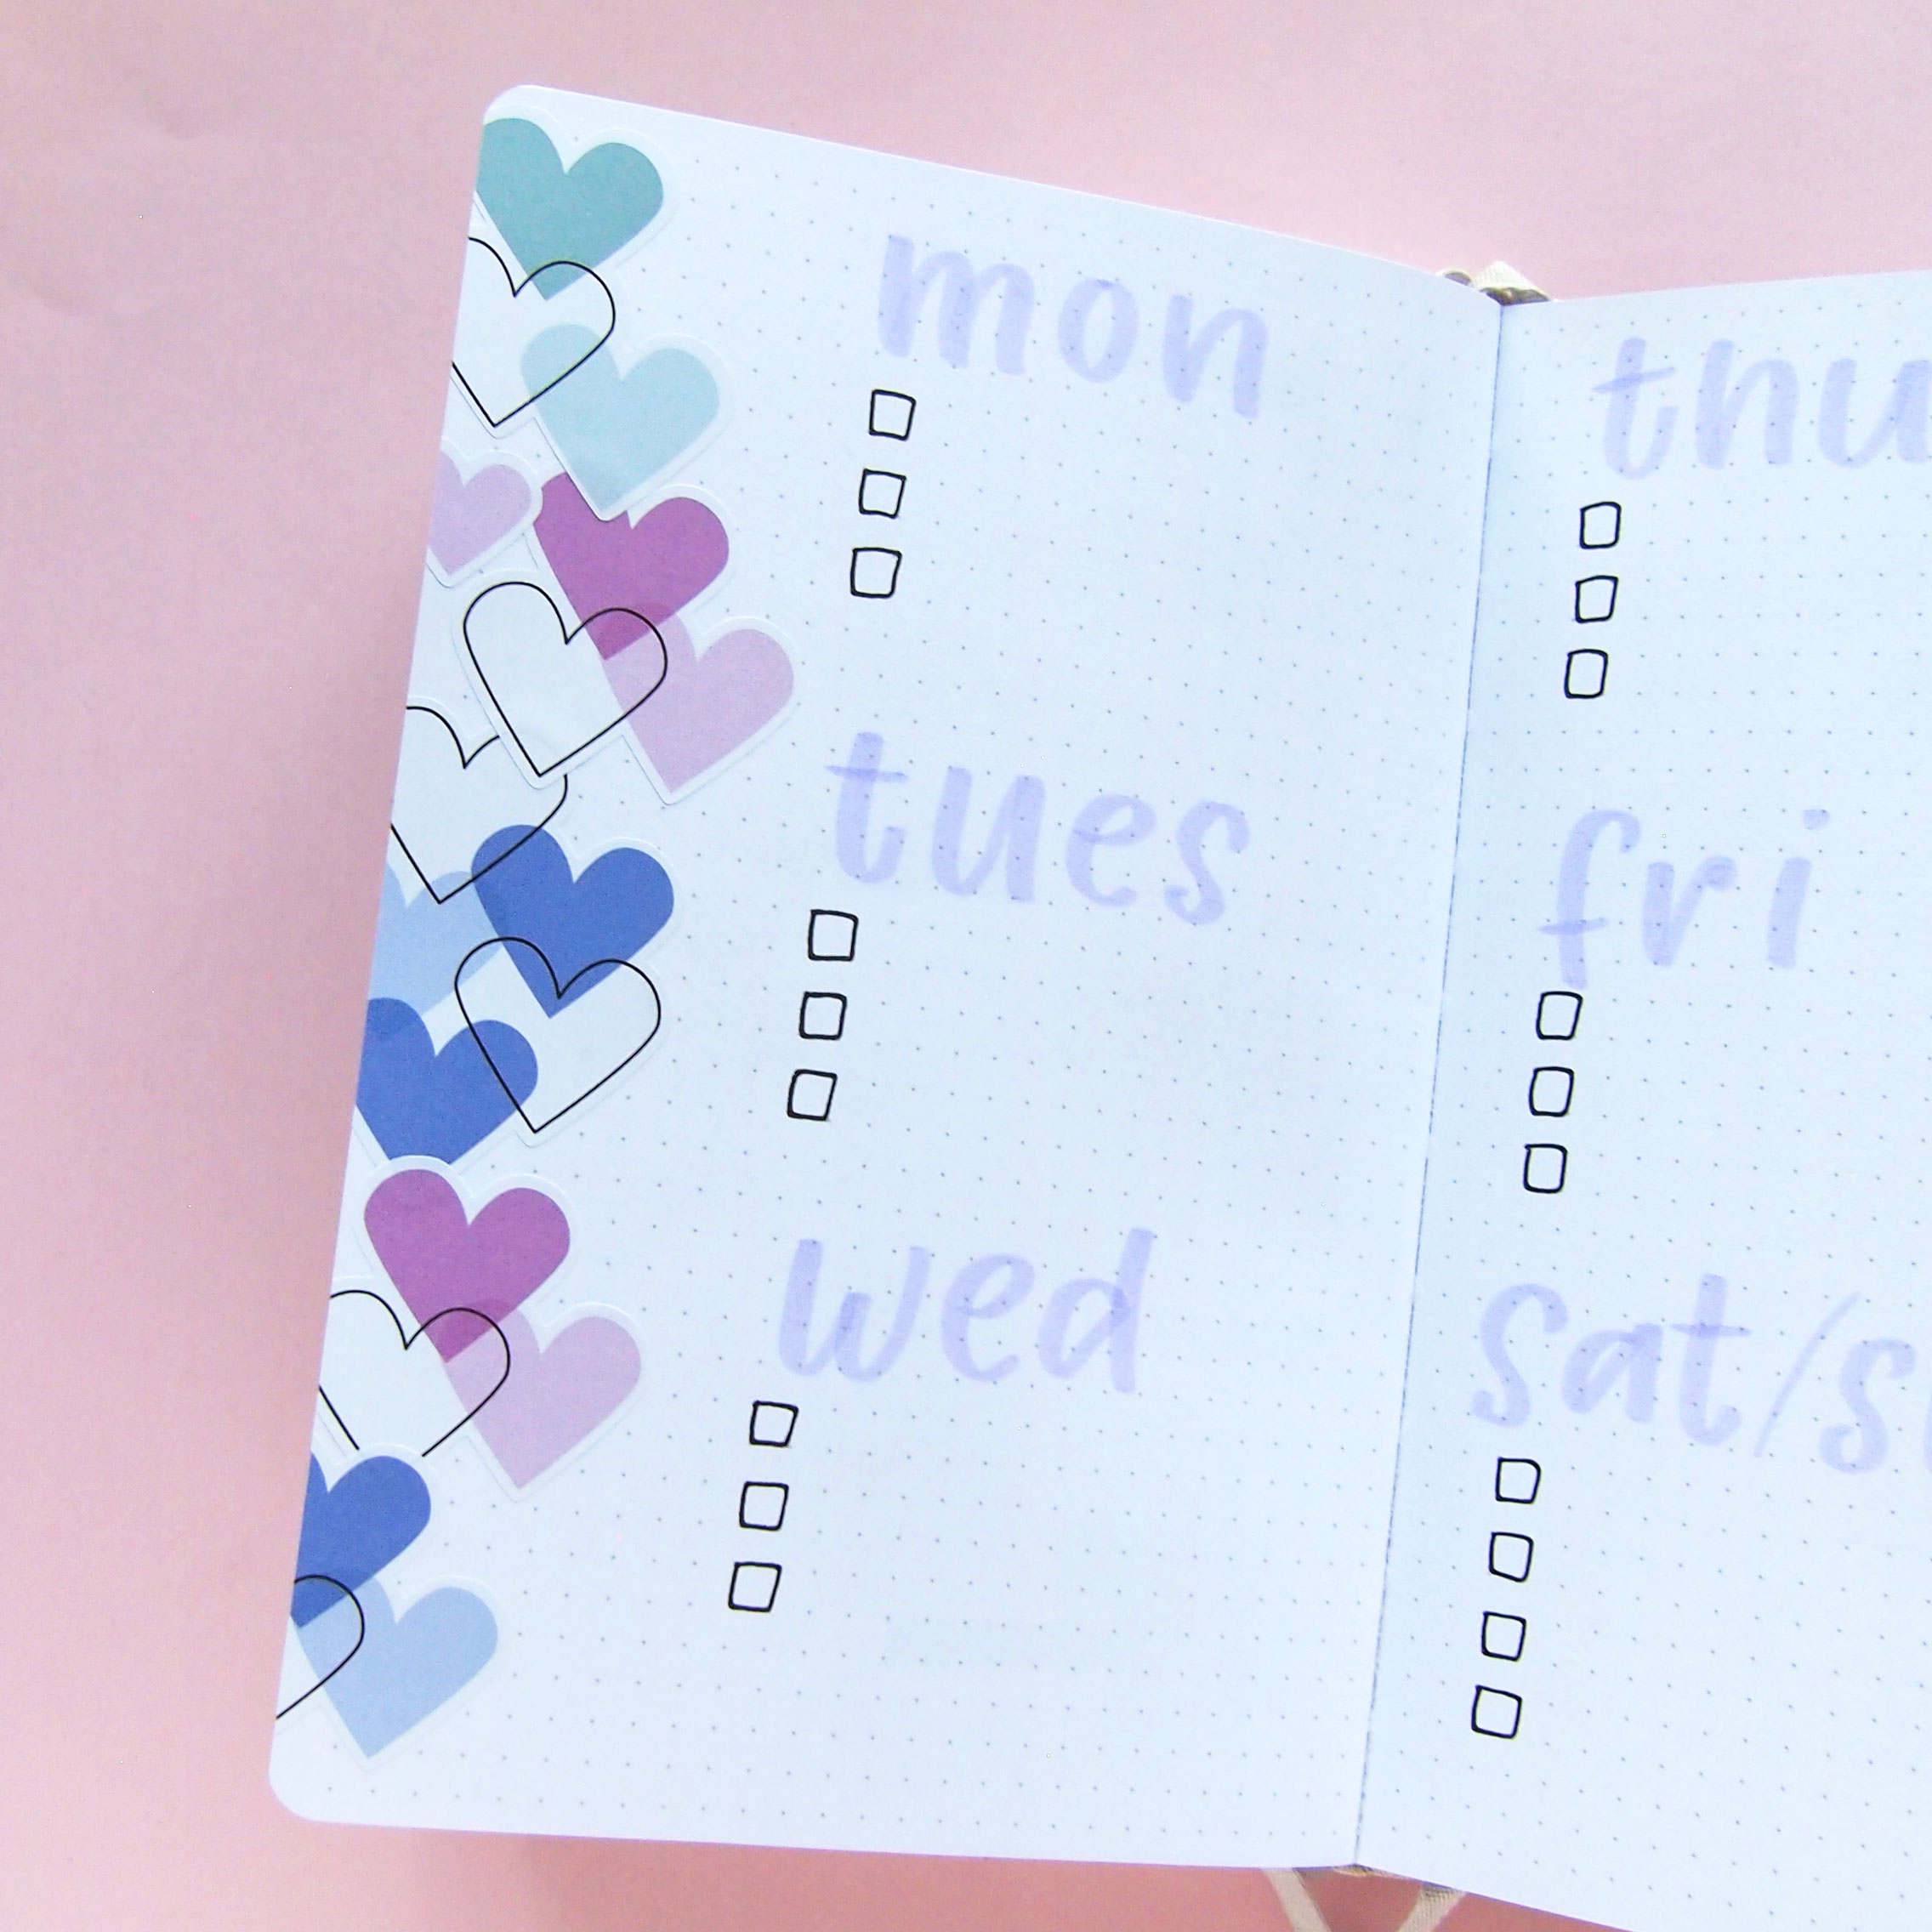 mon
tues
wed
thu
fri
sat/s